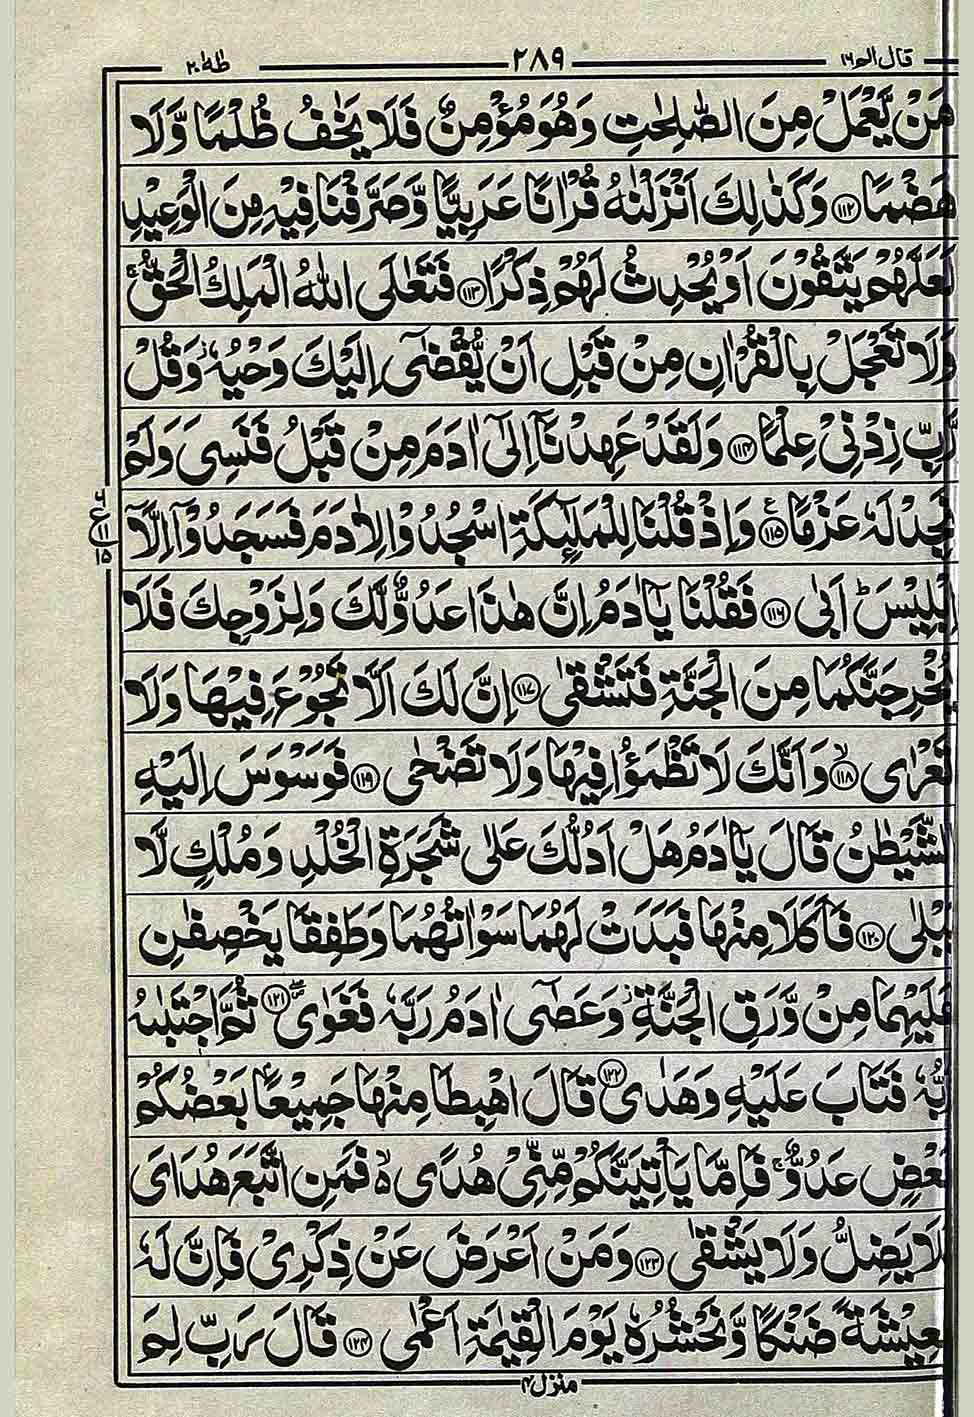 قال الم ١٦ ٢٨٩ طٰهٰ ٢٠
مَنْ يَّعْمَلْ مِنَ الصّٰلِحٰتِ وَهُوَ مُؤْمِنٌ فَلَا يَخٰفُ ظُلْمًا وَّلَا
هَضْمًا ﴿١١٢﴾ وَكَذٰلِكَ اَنْزَلْنٰهُ قُرْاٰنًا عَرَبِيًّا وَّصَرَّفْنَا فِيْهِ مِنَ الْوَعِيْدِ
لَعَلَّهُمْ يَتَّقُوْنَ اَوْ يُحْدِثُ لَهُمْ ذِكْرًا ﴿١١٣﴾ فَتَعٰلَى اللّٰهُ الْمَلِكُ الْحَقُّ ۚ
وَلَا تَعْجَلْ بِالْقُرْاٰنِ مِنْ قَبْلِ اَنْ يُّقْضٰٓى اِلَيْكَ وَحْيُهٗ ۫ وَقُلْ
رَّبِّ زِدْنِيْ عِلْمًا ﴿١١٤﴾ وَلَقَدْ عَهِدْنَآ اِلٰٓى اٰدَمَ مِنْ قَبْلُ فَنَسِيَ وَلَمْ
نَجِدْ لَهٗ عَزْمًا ﴿١١٥﴾ ع وَاِذْ قُلْنَا لِلْمَلٰٓئِكَةِ اسْجُدُوْا لِاٰدَمَ فَسَجَدُوْٓا اِلَّآ
٦ ع ١١ ١٥
اِبْلِيْسَ ؕ اَبٰى ﴿١١٦﴾ فَقُلْنَا يٰٓاٰدَمُ اِنَّ هٰذَا عَدُوٌّ لَّكَ وَلِزَوْجِكَ فَلَا
يُخْرِجَنَّكُمَا مِنَ الْجَنَّةِ فَتَشْقٰى ﴿١١٧﴾ اِنَّ لَكَ اَلَّا تَجُوْعَ فِيْهَا وَلَا
تَعْرٰى ﴿١١٨﴾ ۙ وَاَنَّكَ لَا تَظْمَؤُا فِيْهَا وَلَا تَضْحٰى ﴿١١٩﴾ فَوَسْوَسَ اِلَيْهِ
الشَّيْطٰنُ قَالَ يٰٓاٰدَمُ هَلْ اَدُلُّكَ عَلٰى شَجَرَةِ الْخُلْدِ وَمُلْكٍ لَّا
يَبْلٰى ﴿١٢٠﴾ فَاَكَلَا مِنْهَا فَبَدَتْ لَهُمَا سَوْاٰتُهُمَا وَطَفِقَا يَخْصِفٰنِ
عَلَيْهِمَا مِنْ وَّرَقِ الْجَنَّةِ ۫ وَعَصٰٓى اٰدَمُ رَبَّهٗ فَغَوٰى ﴿١٢١﴾ ۖ ثُمَّ اجْتَبٰىهُ
رَبُّهٗ فَتَابَ عَلَيْهِ وَهَدٰى ﴿١٢٢﴾ قَالَ اهْبِطَا مِنْهَا جَمِيْعًا ۢ بَعْضُكُمْ
لِبَعْضٍ عَدُوٌّ ۚ فَاِمَّا يَاْتِيَنَّكُمْ مِّنِّيْ هُدًى ۙ۬ فَمَنِ اتَّبَعَ هُدَايَ
فَلَا يَضِلُّ وَلَا يَشْقٰى ﴿١٢٣﴾ وَمَنْ اَعْرَضَ عَنْ ذِكْرِيْ فَاِنَّ لَهٗ
مَعِيْشَةً ضَنْكًا وَّنَحْشُرُهٗ يَوْمَ الْقِيٰمَةِ اَعْمٰى ﴿١٢٤﴾ قَالَ رَبِّ لِمَ
منزل ٤